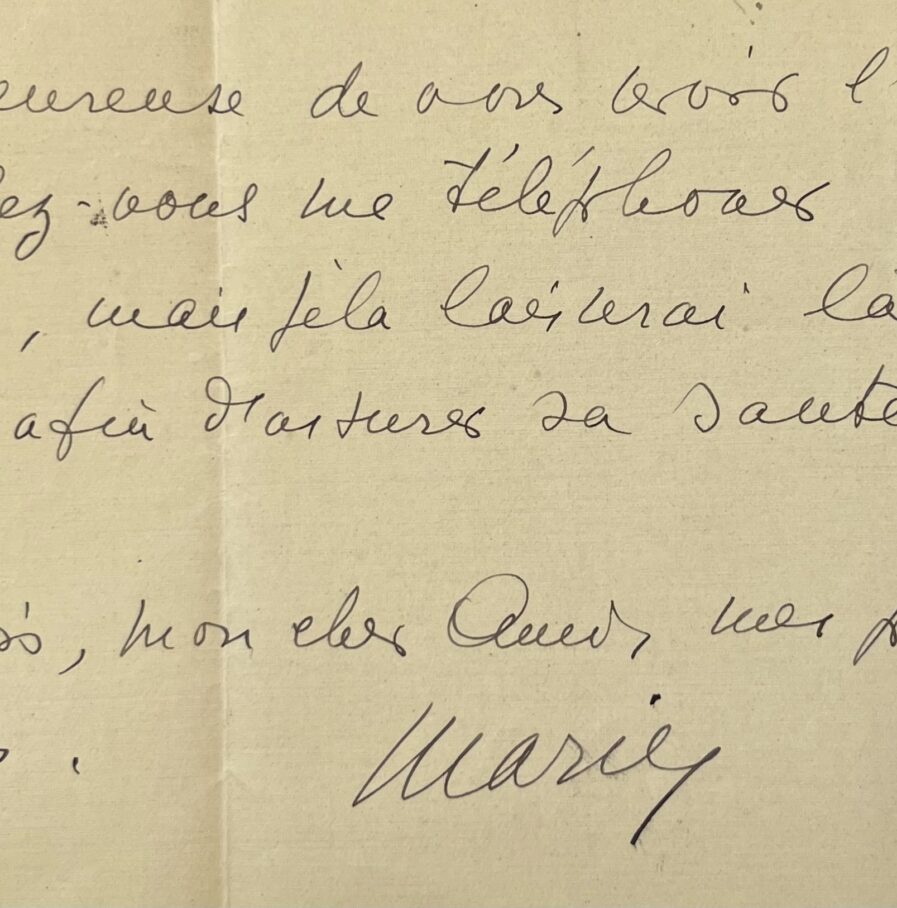 eureuse de vous voir l
ez-vous me téléphoner
, mais je la laisserai là
afin d'assurer sa santé
, mon cher Ami, mes
Marie